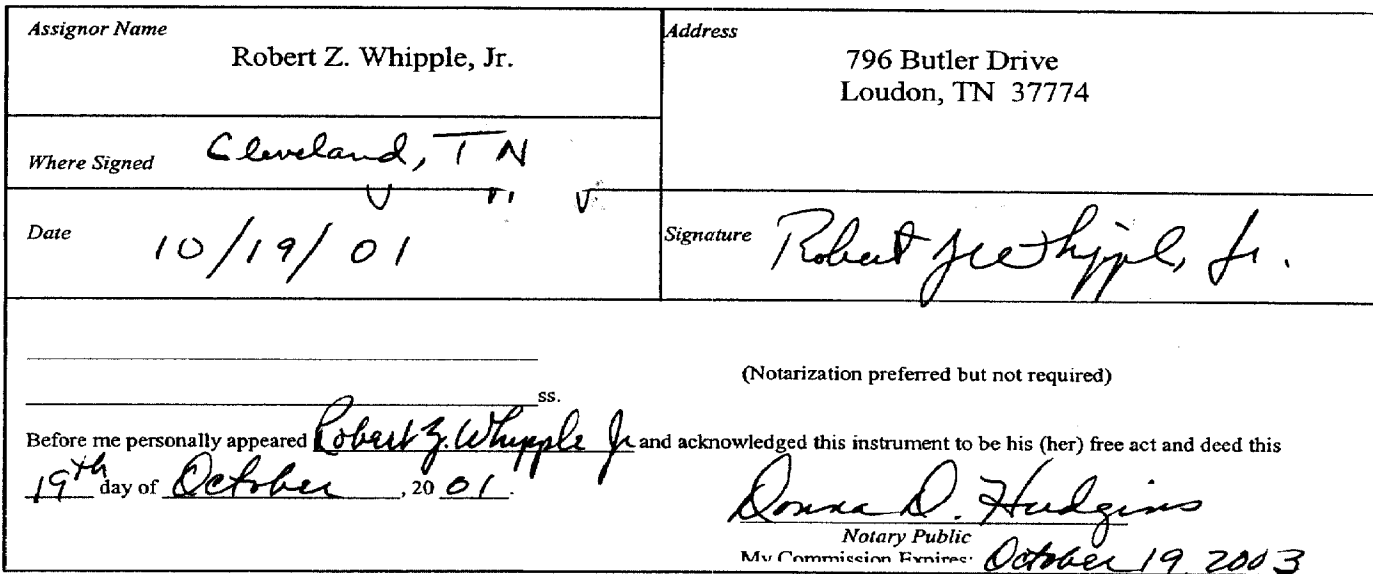 Assignor Name
Robert Z. Whipple, Jr.
Address
796 Butler Drive
Loudon, TN 37774
Where Signed Cleveland, TN
Date 10/19/01
Signature Robert Z Whipple, Jr.
(Notarization preferred but not required)
ss.
Before me personally appeared Robert Z. Whipple Jr and acknowledged this instrument to be his (her) free act and deed this
19th day of October, 20 01.
Donna D. Hudgins
Notary Public
My Commission Expires: October 19, 2003